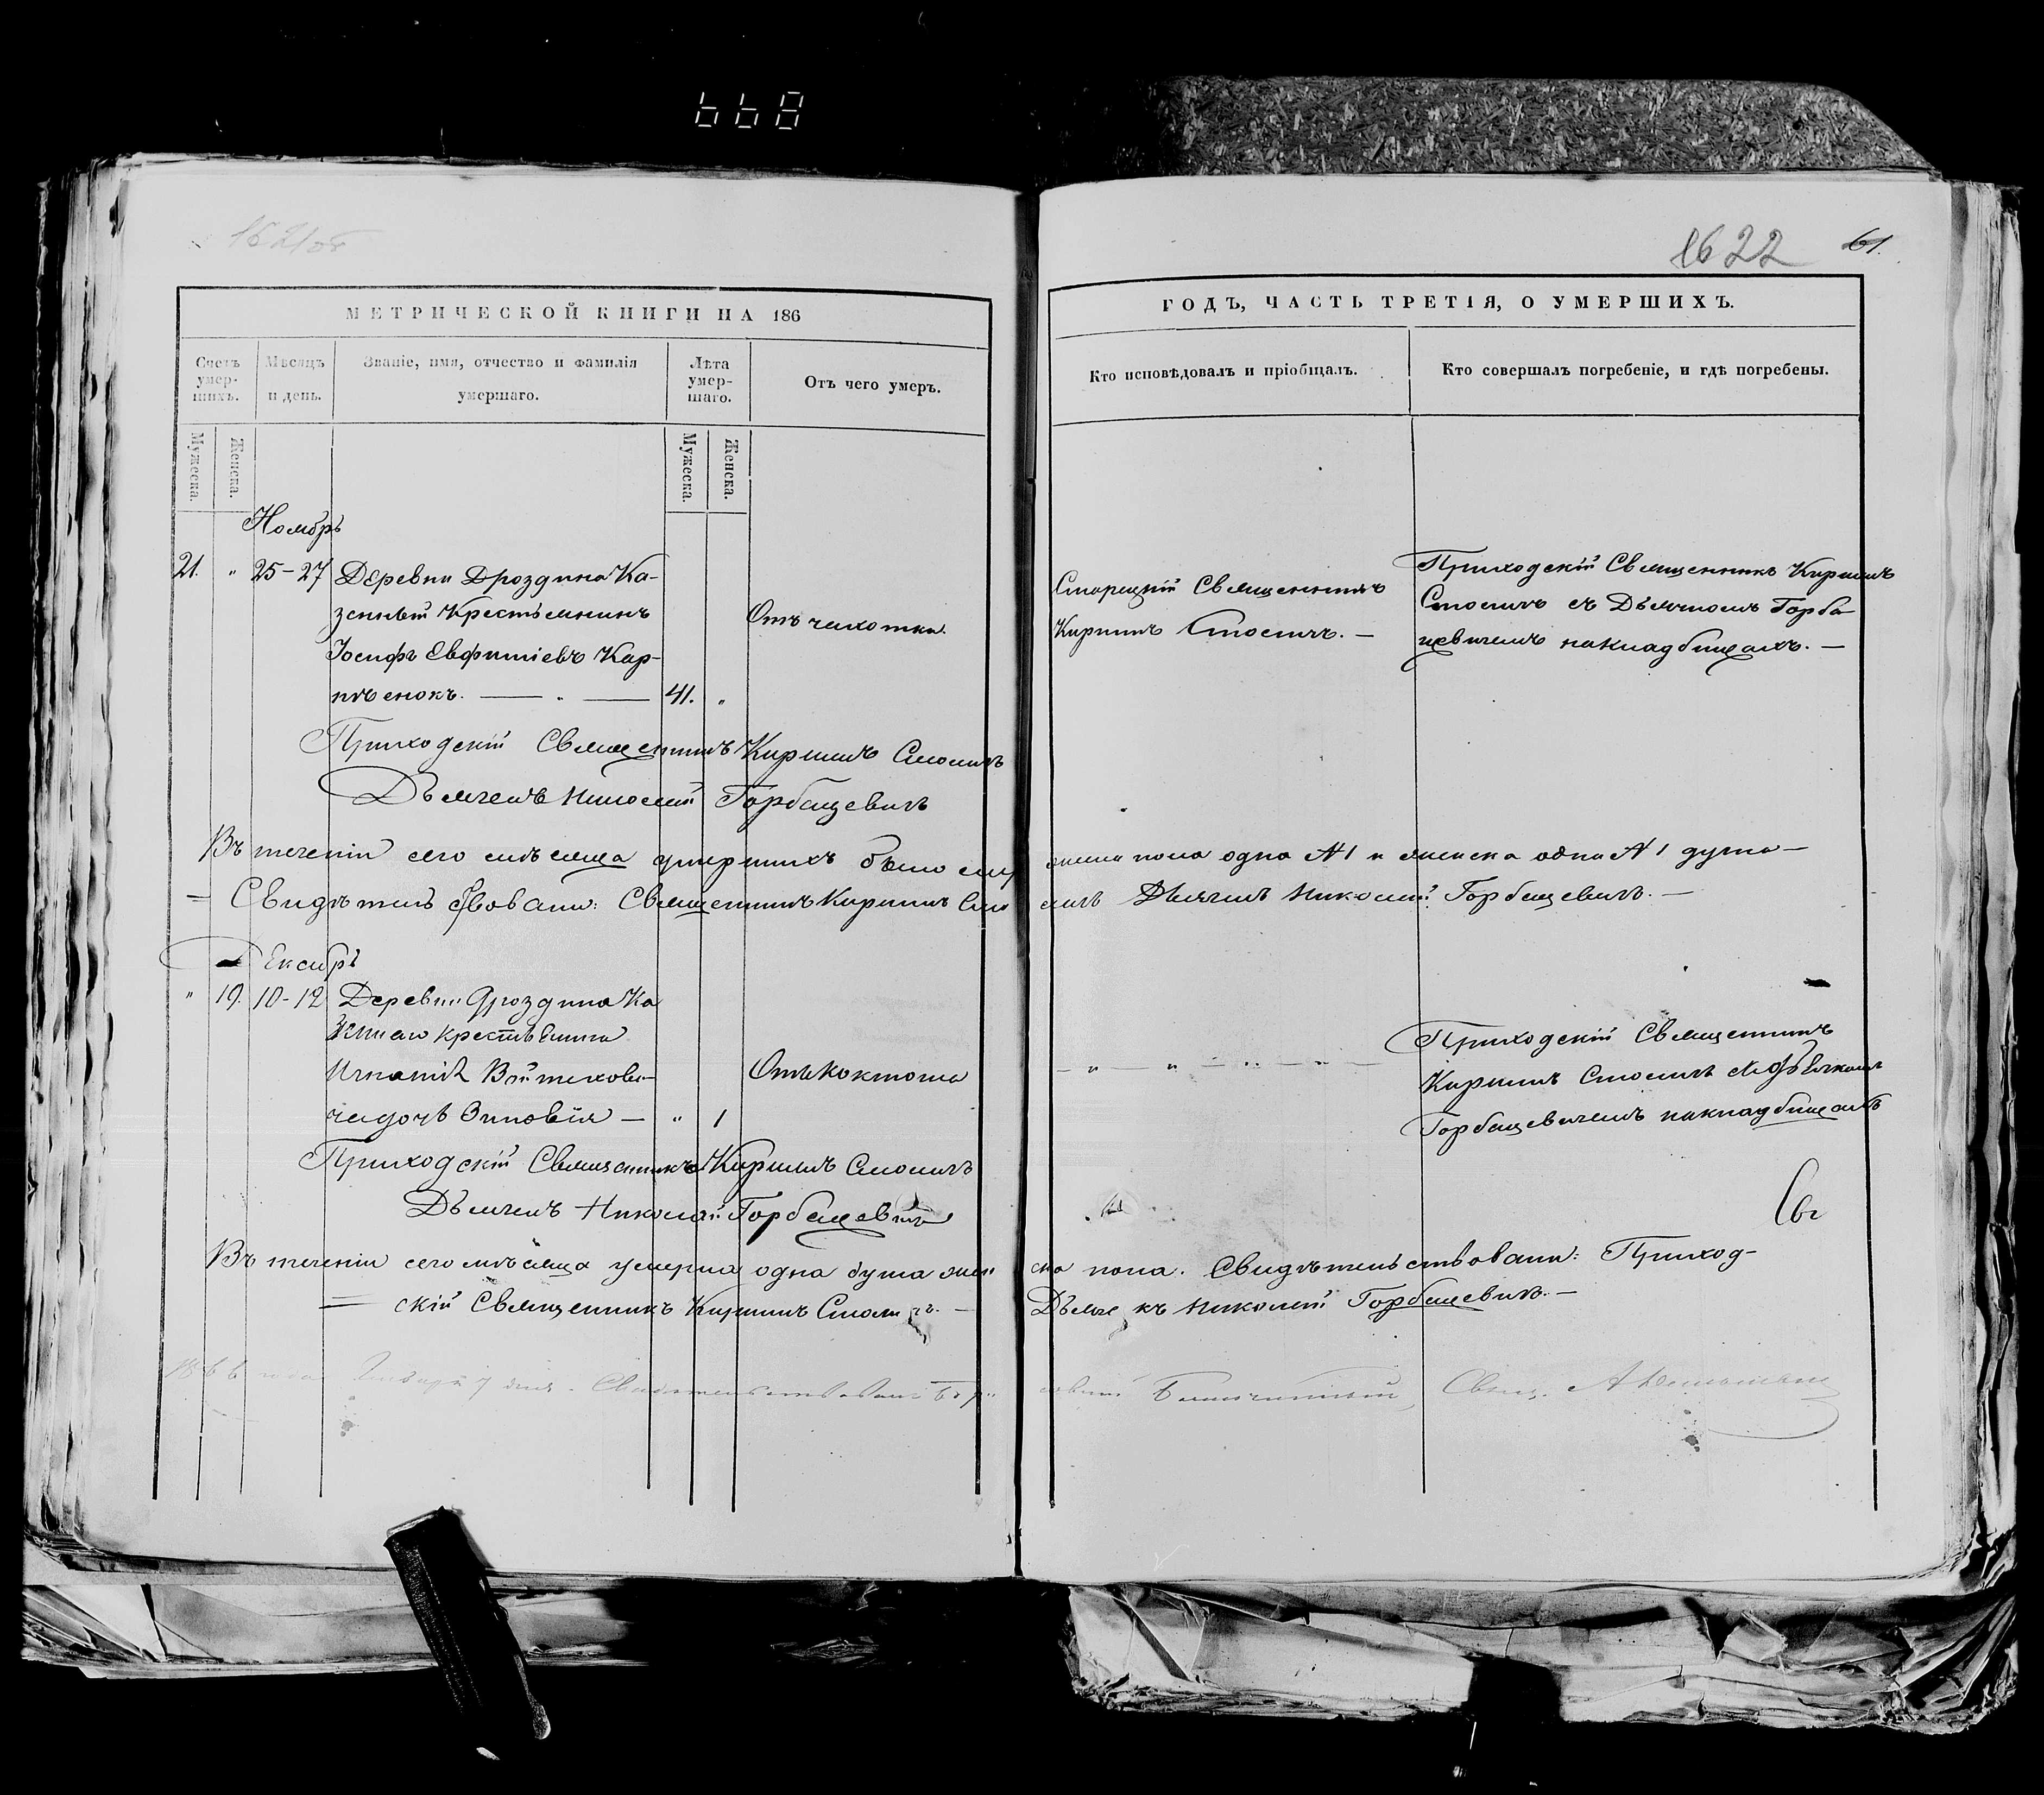 668
1621об
1622
61.
МЕТРИЧЕСКОЙ КНИГИ НА 186
ГОДЪ, ЧАСТЬ ТРЕТІЯ, О УМЕРШИХЪ.
Счетъ умер-шихъ.
Мѣсяцъ и день.
Званіе, имя, отчество и фамилія умершаго.
Лѣта умер-шаго.
Отъ чего умеръ.
Кто исповѣдовалъ и пріобщалъ.
Кто совершалъ погребеніе, и гдѣ погребены.
Мужеска.
Женска.
Мужеска.
Женска.
Ноябрь
21. " 25-27 Деревни Дроздина Ка-
зенный Крестьянинъ
Іосифъ Евфиміевъ Кар-
пѣенокъ. — " — 41. "
Отъ чахотки.
Священникъ
Кирилъ Смоличъ. —
Приходскій Священникъ Кирилъ
Смоличъ съ Дьячкомъ Горба
цевичемъ на кладбищахъ. —
Приходскій Священникъ Кирилъ Смоличъ
Дьячекъ Николай Горбацевичъ
Въ теченіи сего мѣсяца умершихъ было муж
ска пола одна №1 и женска одна №1 душа —
— Свидѣтельствовали: Священникъ Кирилъ Смо
личъ Дьячекъ Николай Горбацевичъ. —
Декабрь
" 19. 10-12 Деревни Дроздина Ка
зеннаго крестьянина
Игнатія Войтехови-
ча дочь Зиновія — " 1
Отъ коклюша
— " — " — " — " —
Приходскій Священникъ
Кирилъ Смоличъ съ Дьячкомъ
Горбацевичемъ на кладбищахъ
Приходскій Священникъ Кирилъ Смоличъ
Дьячекъ Николай Горбацевичъ
Въ теченіи сего мѣсяца умерла одна душа жен
ска пола. Свидѣтельствовали: Приход-
= скій Священникъ Кирилъ Смоличъ. —
Дьячекъ Николай Горбацевичъ. —
1866 года Января 7 дня. Свидѣтельствовалъ
Благочинный Свящ.